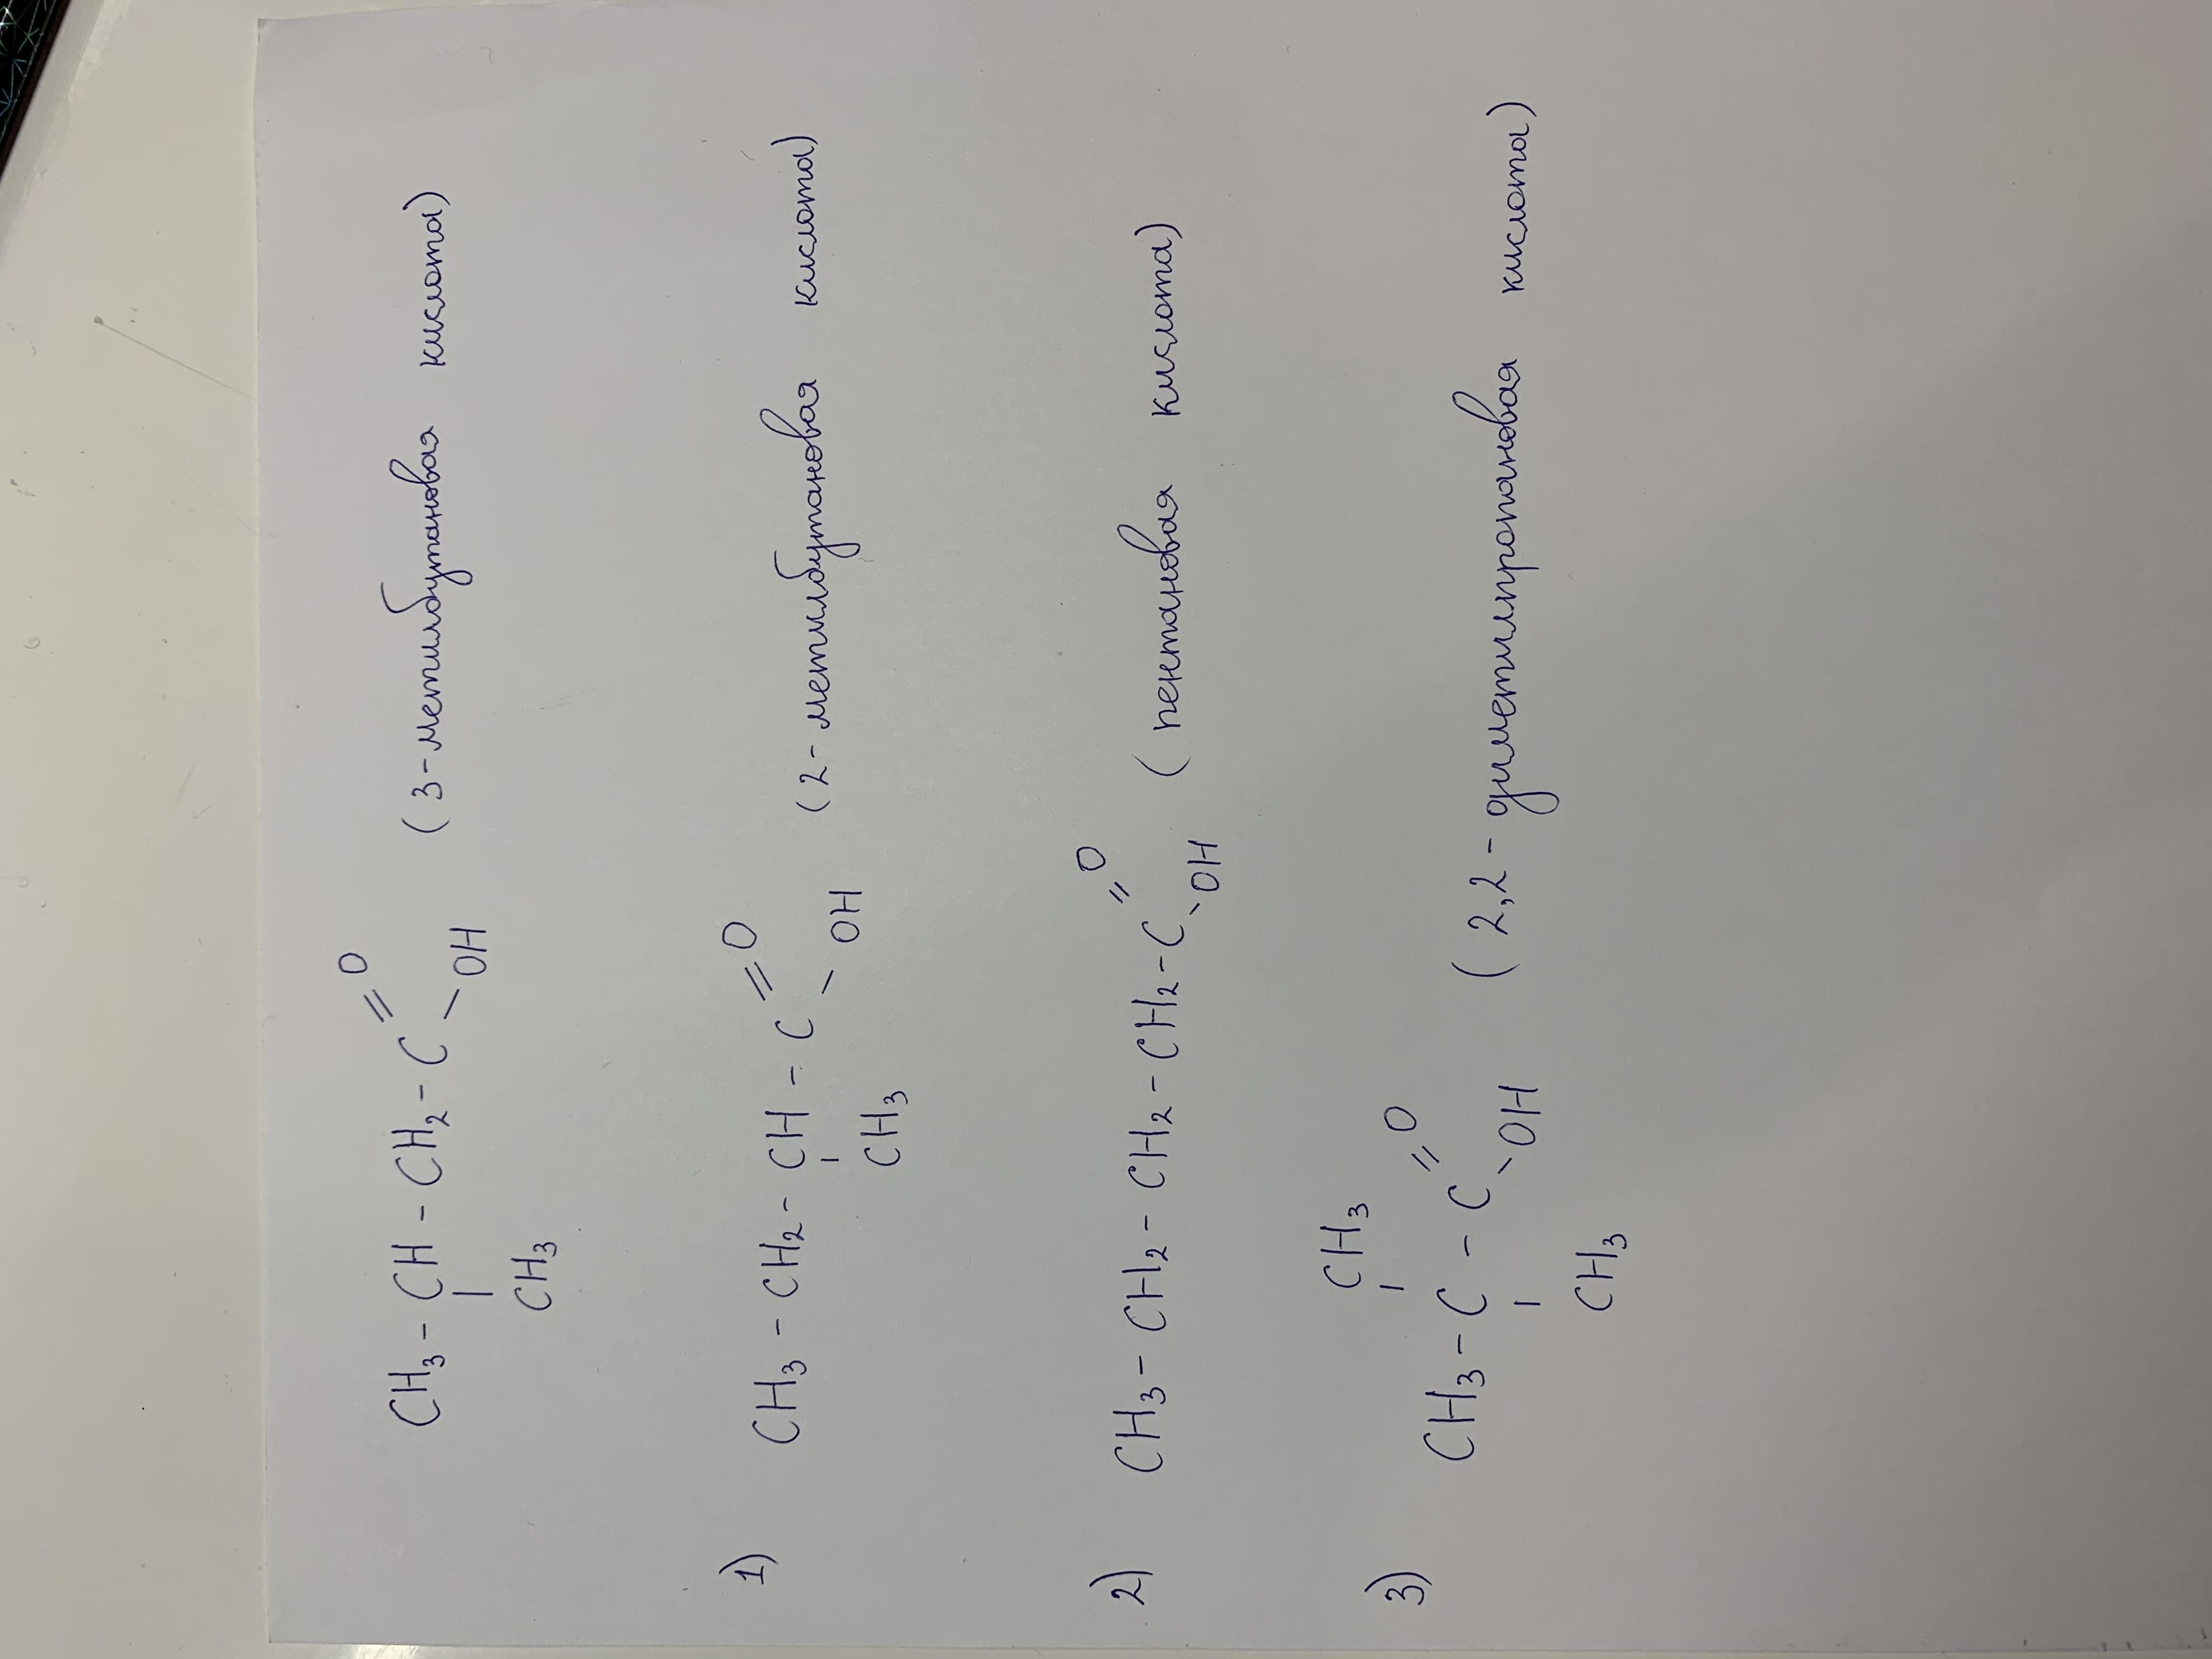 CH₃ - CH - CH₂ - C =O -OH (3-метилбутановая кислота)
CH₃
1) CH₃ - CH₂ - CH - C =O -OH (2-метилбутановая кислота)
CH₃
2) CH₃ - CH₂ - CH₂ - CH₂ - CH₂ - C =O -OH (пентановая кислота)
CH₃
3) CH₃ - C - C =O -OH (2,2-диметилпропановая кислота)
CH₃